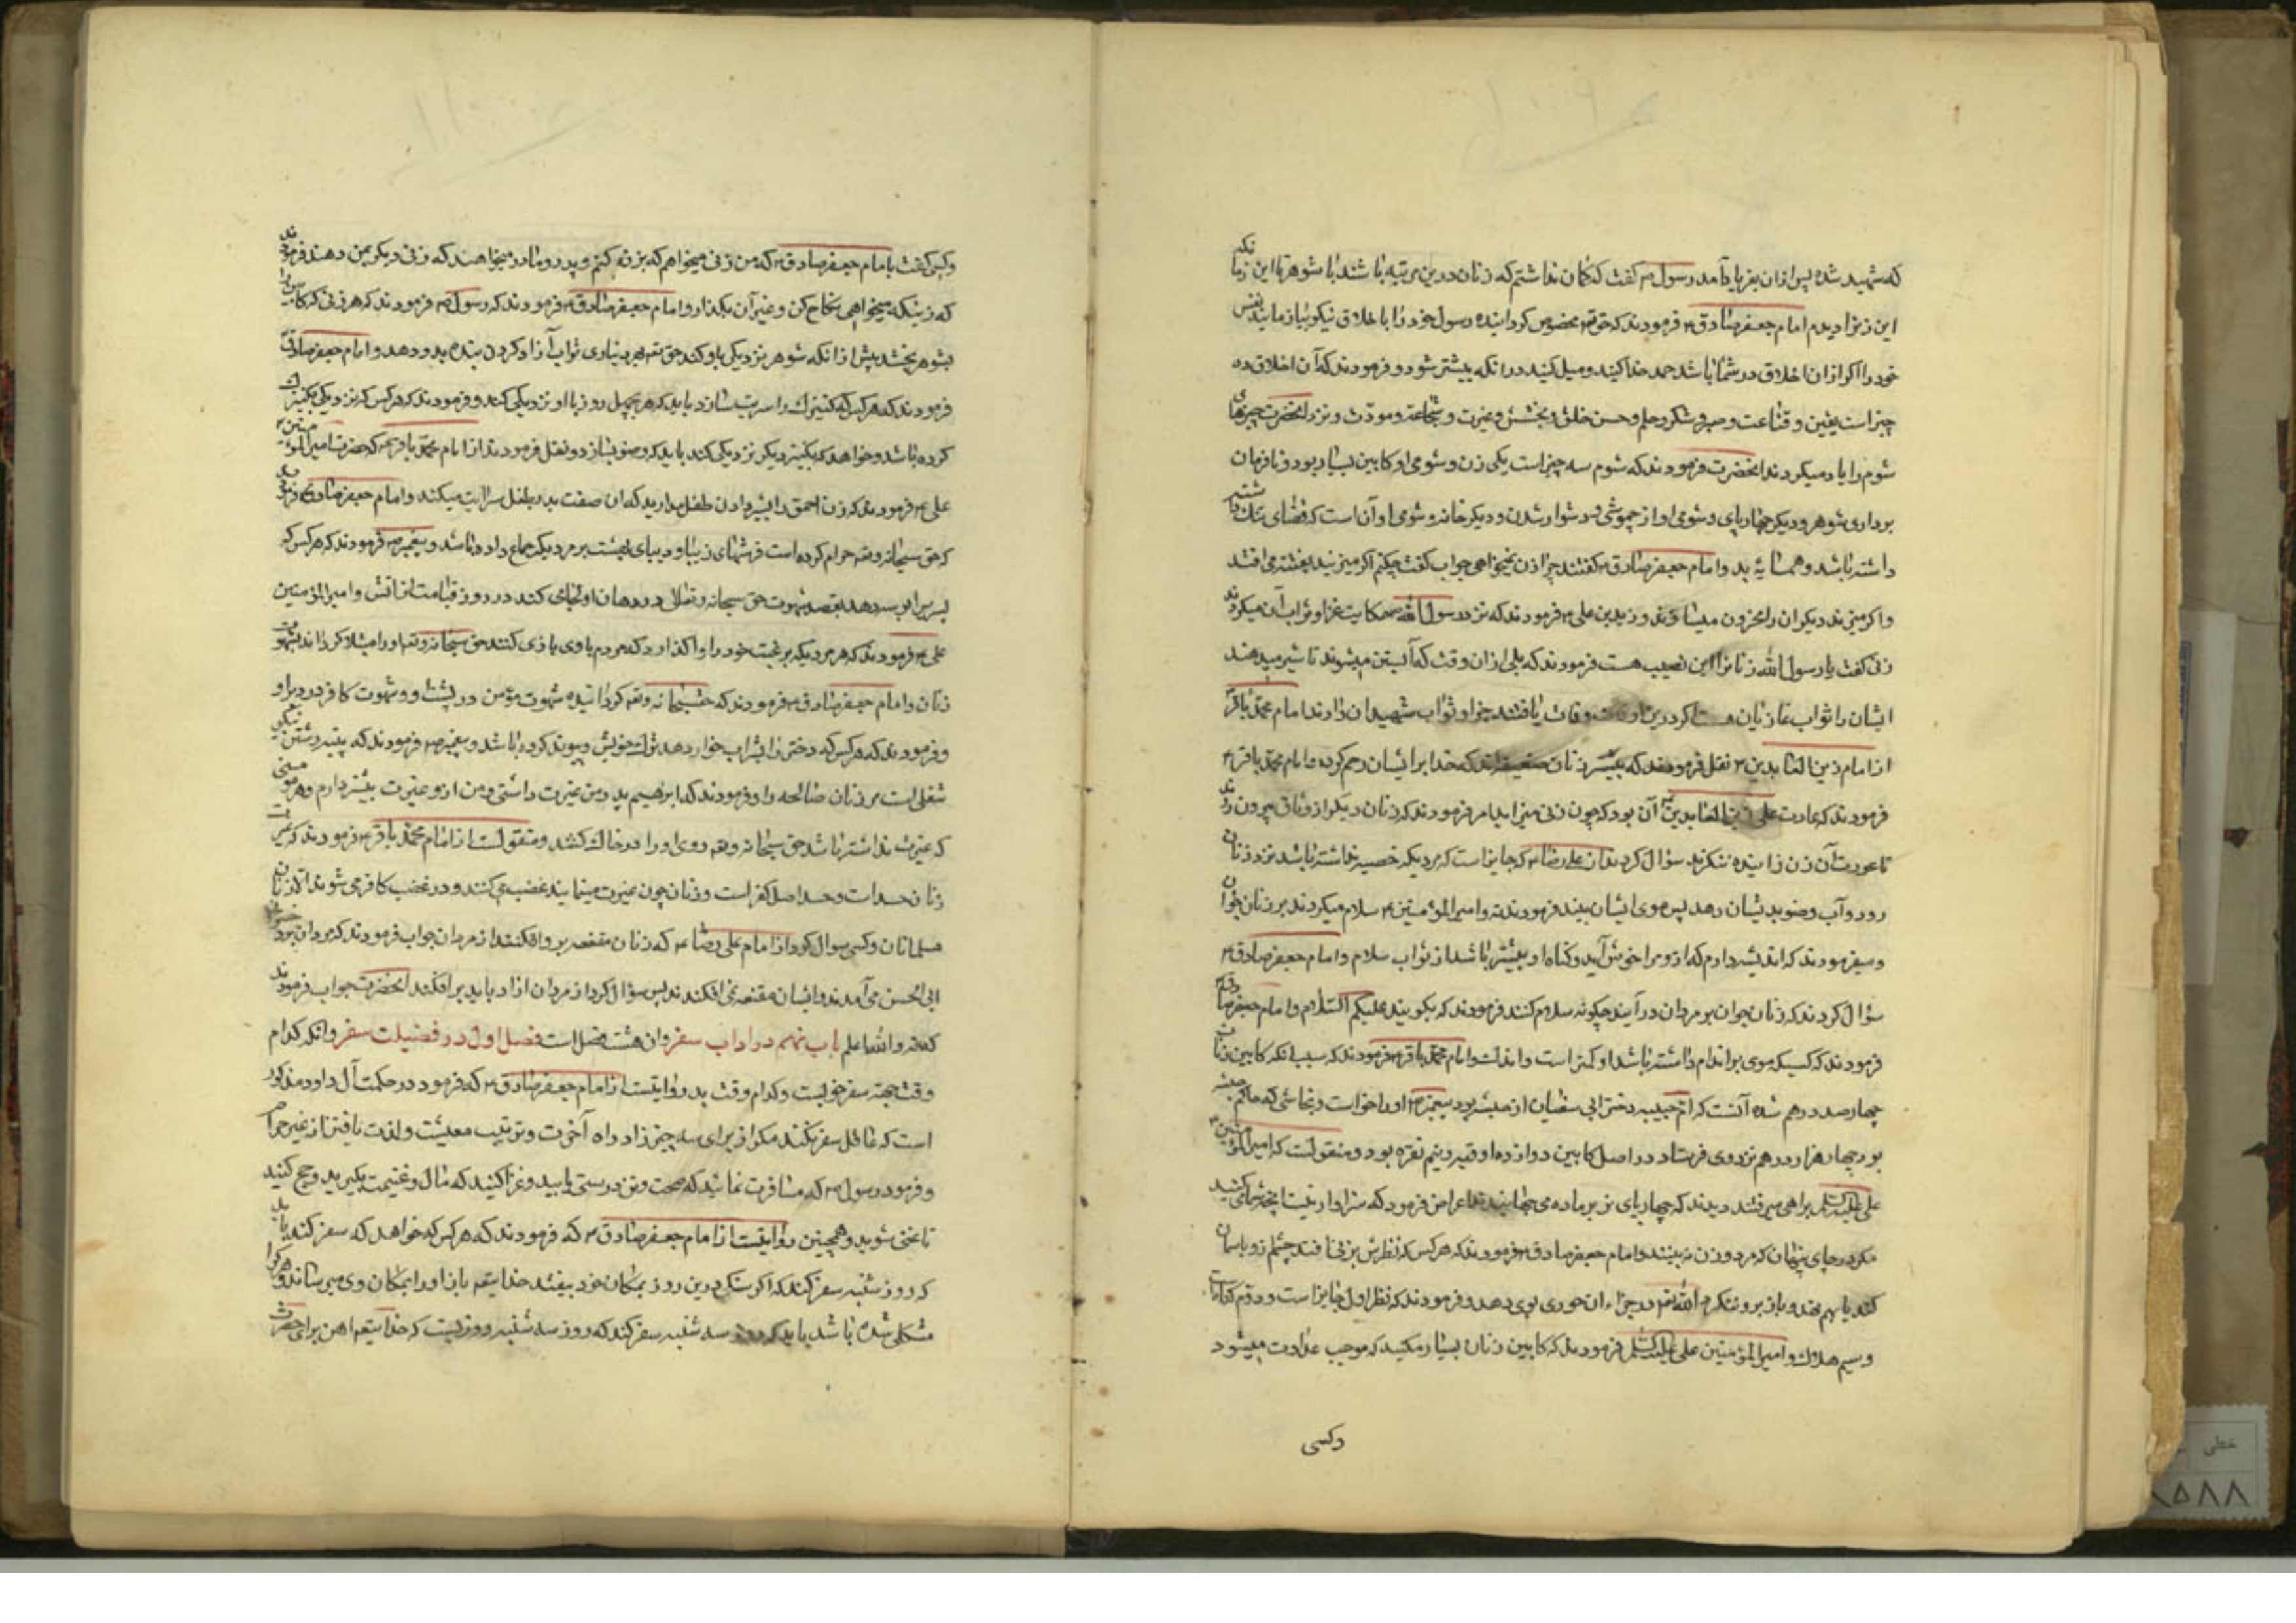 که شهید شده پس از آن بفریاد آمد رسول ص گفت که کمان نداشتم که زنان درین مرتبه باشند با شوهرها این زمانکه
این زنرا دیدم امام جعفر صادق ع فرمودند که حق تع مخصوص کردانیده رسول خود را با اخلاق نیکو بیازمائید نفس
خود را اکر از آن اخلاق در شما باشد حمد خدا کنید و میل کنید در آنکه بیشتر شود و فرمودند که آن اخلاق ده
چیز است یقین و قناعت و صبر و شکر و حلم و حسن خلق و بخشش و غیرت و شجاعة و مودّت و نزد آنحضرت چیزهای
شوم را یاد میکردند آنحضرت فرمودند که شوم سه چیز است یکی زن و شومی او کابین بسیار بود و نافرمان
برداری شوهر و دیکر چهارپای و شومی او از چموشی و دشوار شدن و دیکر خانه و شومی او آن است که فضای تنک داشته
داشته باشد و همسایهٔ بد و امام جعفر صادق ع کفتند چرا زن نمیخواهی جواب کفت چکنم اکر میزنید بفتنه می افتد
واکر میزند دیکران را محزون میسازند و زید بن علی ع فرمودند که نزد رسول الله ص حکایت غزا و ثواب آن میکردند
زنی کفت یا رسول الله زنانرا این نصیب هست فرمودند که بلی از آن وقت که آبستن میشوند تا شیر میدهند
ایشان را ثواب غازیان هست اکر درین وقت وفات یافتند جزا و ثواب شهیدان دارند امام محمّد باقر ع
از امام زین العابدین ع نقل فرمودند که بیشتر زنان ضعیفه اند که خدا برایشان رحم کرده و امام محمّد باقر ع
فرمودند که عادت علی زین العابدین آن بود که چون زنی میزاید امر فرمودند که زنان دیکر از وثاق بیرون روند
تا عورت آن زن زاینده ننکرند سؤال کردند از علی رضا ع که جایز است که مردیکه خصیه نداشته باشد نزد زنان
رود و آب وضو بدیشان دهد پس موی ایشان بیند فرمودند نه و امیرالمؤمنین ع سلام میکردند بر زنان جوان
و میفرمودند که اندیشه دارم که آواز او مرا خوش آید و کناه او بیشتر باشد از ثواب سلام و امام جعفر صادق ع
سؤال کردند که زنان جوان بر مردان درآیند چکونه سلام کنند فرمودند که بکویند علیکم السّلام و امام جعفر صادق ع
فرمودند که کسیکه موی بر اندام داشته باشد او کمتر است و امام محمّد باقر ع فرمودند که سبب آنکه کابین زنان
چهارصد درهم شده آنست که امّ حبیبه دختر ابی سفیان از حبشه بود پیغمبر ص او را خواست و نجاشی که حاکم حبشه
بود چهار هزار درهم نزد وی فرستاد در اصل کابین دوازده اوقیه و نیم نقره بود و منقولست که امیرالمؤمنین ع
علی علیه السّلم براهی میرفتند دیدند که چهارپای نر بر ماده می جهانیدند اعراض فرمود که سزاوار نیست آنچه شما می کنید
مکر در جای پنهان که مرد و زن نه بینند و امام جعفر صادق ع فرمودند که هر کس که نظرش بر زنی افتد چشم زود بآسمان
کند یا بهم نهد و باز بر وی ننکرد الله تع در جزاء آن حوری بوی دهد و فرمودند که نظر اول جایز است و دوّم
و سیم هلاک و امیرالمؤمنین علی علیه السّلم فرمودند که کابین زنان بسیار مکنید که موجب عداوت میشود
وکسی
وکسی کفت با امام جعفر صادق ع که من زنی میخواهم که بزنی کنم و پدر و مادر میخواهند که زنی دیکر بمن دهند فرمودند
که زنیکه میخواهی نکاح کن و غیر آن بکذار و امام جعفر صادق ع فرمودند که رسول ص فرمودند که هر زنی که کابین را
بشوهر بخشد پیش از آنکه شوهر نزدیکی باو کند حق تع بهر دیناری ثواب آزاد کردن بنده بدو دهد و امام جعفر صادق ع
فرمودند که هر کس که کنیزک را سریت سازد باید که هر چهل روز با او نزدیکی کند و فرمودند که هر کس که نزدیکی بکنیزک
کرده باشد و خواهد که بکنیز دیکر نزدیکی کند باید که وضو بسازد و نقل فرمودند از امام محمّد باقر ع که حضرت امیرالمؤمنین ع
علی ع فرمودند که زن احمق را بشیر دادن طفل مدارید که آن صفت بد بطفل سرایت میکند و امام جعفر صادق ع فرمودند
که حق سبحانه و تع حرام کرده است فرشهای زیبا و دیبای بهشت بر مردیکه جماع داده باشد و پیغمبر ص فرمودند که هر کس که
پسریرا بوسه دهد بقصد شهوت حق سبحانه و تعالی در دهان او لجامی کند در روز قیامت از آتش و امیرالمؤمنین
علی ع فرمودند که هر مردیکه برغبت خود را واکذارد که مردم با وی بازی کنند حق سبحانه و تع او را مبتلا کرداند بشهوت
زنان و امام جعفر صادق ع فرمودند که حق سبحانه و تع کردانیده شهوت مؤمن در پشت او و شهوت کافر در دبر او
و فرمودند که هر کس که دختر را بشراب خوار دهد ترک خویش و پیوند کرده باشد و پیغمبر ص فرمودند که پنبه رشتن نیکو
شغلی است مر زنان صالحه را و فرمودند که ابراهیم پدر من غیرت داشتی و من از و غیرت بیشتر دارم و هر مؤمنی
که غیرت نداشته باشد حق سبحانه و تع روی او را در خاک کشد و منقولست از امام محمّد باقر ع فرمودند که غیرت
زنان حسد است و حسد اصل کفر است و زنان چون غیرت مینمایند غضب می کنند و در غضب کافر می شوند الّا زنان
مسلمانان و کسی سوال کرد از امام علی رضا ع که زنان مقنعه بر وافکنند از مردان جواب فرمودند که مردان نزد
ابی الحسن می آمدند و ایشان مقنعه نمی افکندند پس سؤال کرد از مردان آزاد باید بر افکند آنحضرت جواب فرمودند
که نه والله اعلم باب نهم در آداب سفر و آن هشت فصل است فصل اول در فضیلت سفر و آنکه کدام
وقت جهة سفر خوبست و کدام وقت بد روایتست از امام جعفر صادق ع که فرمود در حکمت آل داود مذکور
است که عاقل سفر نکند مکر از برای سه چیز زاد راه آخرت و ترتیب معیشت و لذت یافتن از غیر حرام
و فرمود رسول ص که مسافرت نمائید که صحت و تن درستی یابید و غزا کنید که مال و غنیمت بکیرید و حج کنید
تا غنی شوید و همچنین روایتست از امام جعفر صادق ع که فرمودند که هر کس که خواهد که سفر کند باید
که روز شنبه سفر کند که اکر سنکی درین روز بمکان خود بیفتد خدایتع باز او را بمکان وی میرساند و هر کرا
مشکلی شده باشد باید که روز سه شنبه سفر کند که روز سه شنبه روزیست که خدایتع آهن برای حضرت